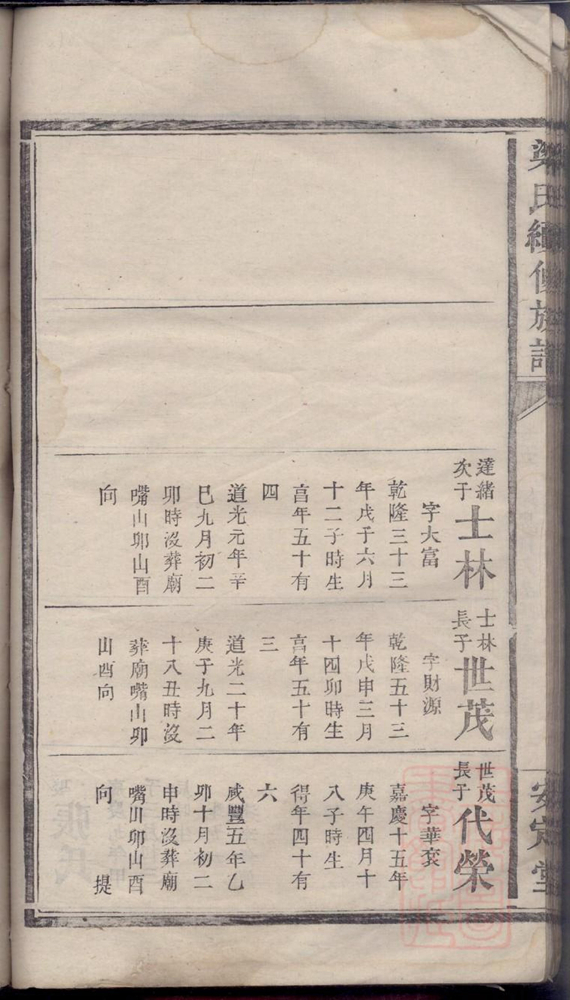 梁氏續修族譜
安定堂
達緒
次子
士林
字大富
乾隆三十三
年戊子六月
十二子時生
亯年五十有
四
道光元年辛
巳九月初二
卯時沒葬廟
嘴山卯山酉
向
士林
長子
世茂
字財源
乾隆五十三
年戊申三月
十四卯時生
亯年五十有
三
道光二十年
庚子九月二
十八丑時沒
葬廟嘴山卯
山酉向
世茂
長子
代榮
字華袞
嘉慶十五年
庚午四月十
八子時生
得年四十有
六
咸豐五年乙
卯十月初二
申時沒葬廟
嘴山卯山酉
向 提